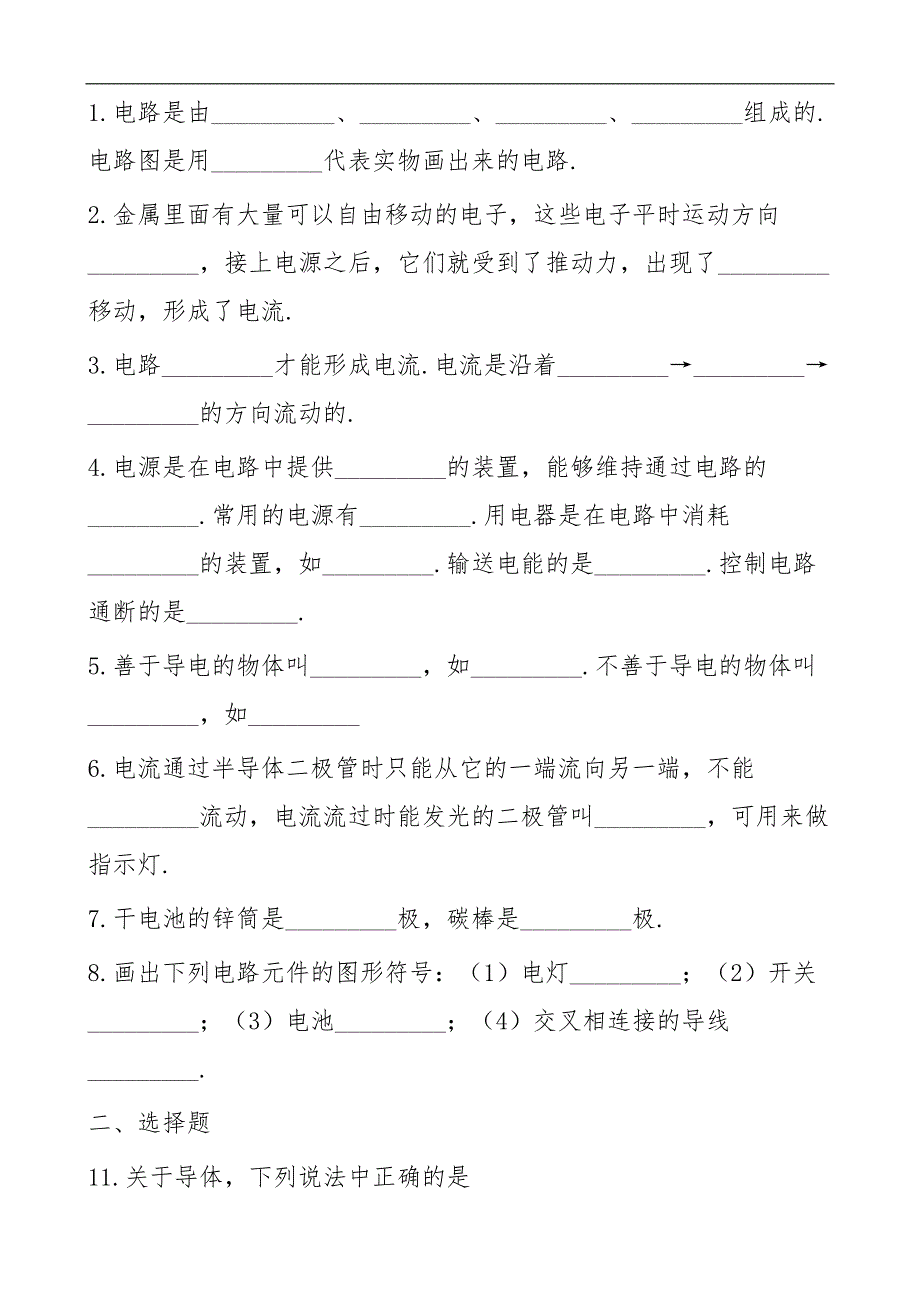 1.电路是由__________、_________、_________、_________组成的.
电路图是用_________代表实物画出来的电路.
2.金属里面有大量可以自由移动的电子，这些电子平时运动方向
_________，接上电源之后，它们就受到了推动力，出现了_________
移动，形成了电流.
3.电路_________才能形成电流.电流是沿着_________→_________→
_________的方向流动的.
4.电源是在电路中提供_________的装置，能够维持通过电路的
_________.常用的电源有_________.用电器是在电路中消耗
_________的装置，如_________.输送电能的是_________.控制电路
通断的是_________.
5.善于导电的物体叫_________，如_________.不善于导电的物体叫
_________，如_________
6.电流通过半导体二极管时只能从它的一端流向另一端，不能
_________流动，电流流过时能发光的二极管叫_________，可用来做
指示灯.
7.干电池的锌筒是_________极，碳棒是_________极.
8.画出下列电路元件的图形符号：（1）电灯_________；（2）开关
_________；（3）电池_________；（4）交叉相连接的导线
_________.
二、选择题
11.关于导体，下列说法中正确的是